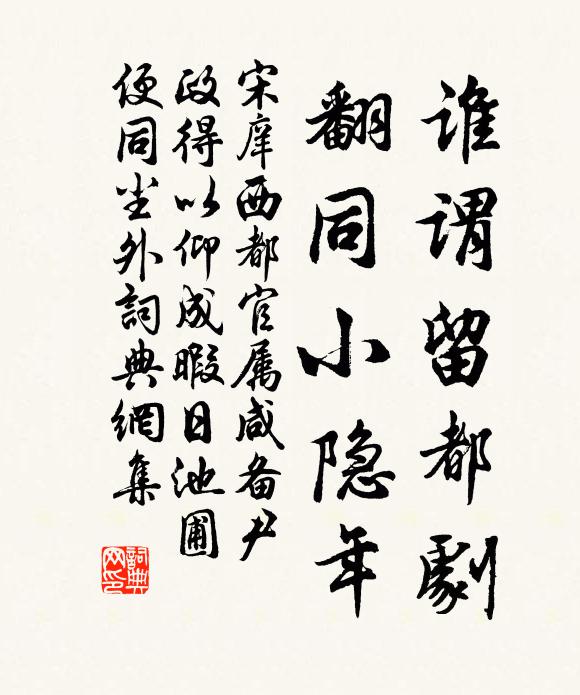 谁谓留都劇
翻同小隐年
宋庠西都官属咸备尹
政得以仰成暇日池圃
便同尘外詞典網集
詞典
网印